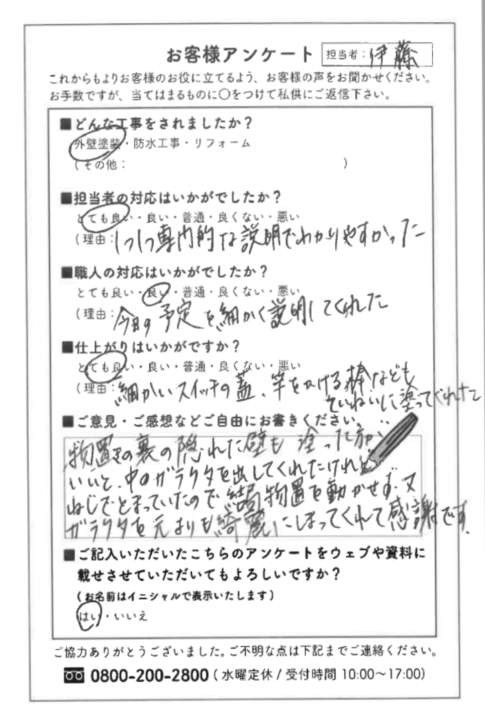 お客様アンケート 担当者：伊藤
これからもよりお客様のお役に立てるよう、お客様の声をお聞かせください。
お手数ですが、当てはまるものに〇をつけて私供にご返信下さい。
■どんな工事をされましたか？
外壁塗装・防水工事・リフォーム
（その他： ）
■担当者の対応はいかがでしたか？
とても良い・良い・普通・良くない・悪い
（理由：1つ1つ専門的な説明でわかりやすかった
■職人の対応はいかがでしたか？
とても良い・良い・普通・良くない・悪い
（理由：今日の予定を細かく説明してくれた
■仕上がりはいかがですか？
とても良い・良い・普通・良くない・悪い
（理由：細かいスイッチの蓋、竿をかける棒なども
ていねいに塗ってくれた
■ご意見・ご感想などご自由にお書きください
物置きの裏の隠れた壁も塗った方が
いいと、中のガラクタを出してくれたけれど
ねじでとまっていたので結局物置を動かせず、又
ガラクタを元よりも綺麗にしまってくれて感謝です。
■ご記入いただいたこちらのアンケートをウェブや資料に
載せさせていただいてもよろしいですか？
（お名前はイニシャルで表示いたします）
はい・いいえ
ご協力ありがとうございました。ご不明な点は下記までご連絡ください。
0800-200-2800（水曜定休/受付時間 10:00〜17:00）